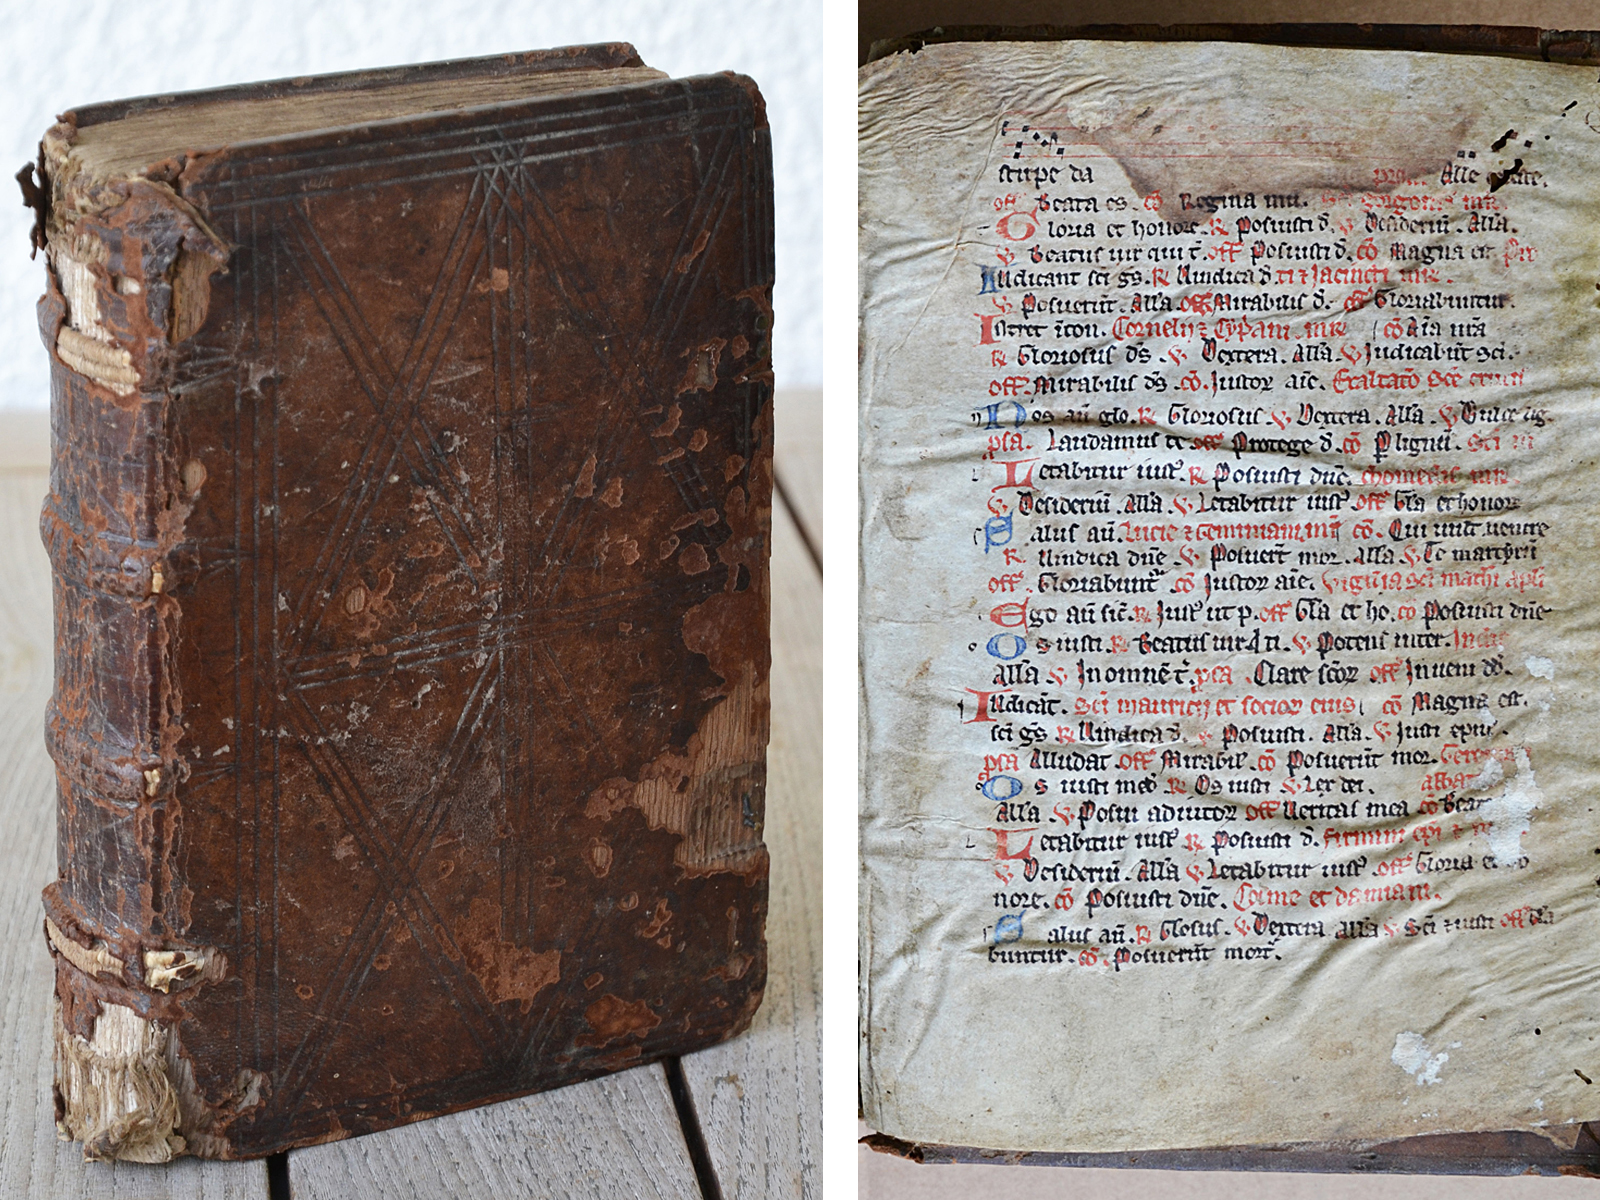 stirpe da Alle
off Beata es. cō Regina mu.
Gloria et honore. R Posuisti d. v Desideriū. Alla.
v Beatus uir qui t. off Posuisti d. cō Magna est
Iudicant sci gs. R Uindica d. ti et Iacincti mr.
v Posuerūt. Alla off Mirabilis d. cō Gloriabuntur.
Intret ī con. Cornelij et Cypani mr cō Aīa nrā
R Gloriosus ds. v Dextera. Alla. v Iudicabūt sci.
off Mirabilis ds. cō. Iustoꝝ aīe. Exaltatō sce crucis
Nos aū glo. R Gloriosus v Dextera. Alla. v Dulce lig.
psa. Laudamus te off Protege d. cō P lignū. Sci
Letabitur iusꝰ. R Posuisti dnē.
v Desideriū. Alla v Letabitur iusꝰ off Gla et honore
Salus aū. Lucie et Geminiani mr cō. Qui uult uenire
R Uindica dnē v Posuerūt mor. Alla v Te martyrū
off Gloriabuntᷣ cō Iustoꝝ aīe. Vigilia sci mathi apli
Ego aū sic. R Iusꝰ ut p. off Gla et ho. co Posuisti dnē
Os iusti. R Beatus uir q ti. v Potens inter.
Alla v In omnē t. psa Clare scōꝝ off Inueni d.
Iudicāt. Sci mauricij et socioꝝ eius cō Magna est.
sci gs R Uindica d. v Posuisti. Alla. v Iusti epul.
psa Alludat off Mirabil cō Posuerūt mor.
Os iusti meꝰ R Os iusti v Lex dei.
Alla v Posui adiutoꝝ off Ueritas mea cō Beat
Letabitur iusꝰ R Posuisti d. Firmini epi et
v Desideriū. Alla v Letabitur iusꝰ off Gloria et ho
nore. cō Posuisti dnē. Cosme et damiani.
Salus aū. R Glosus. v Dextera Alla v Sci et iusti off Gla
buntur. cō Posuerūt mort.